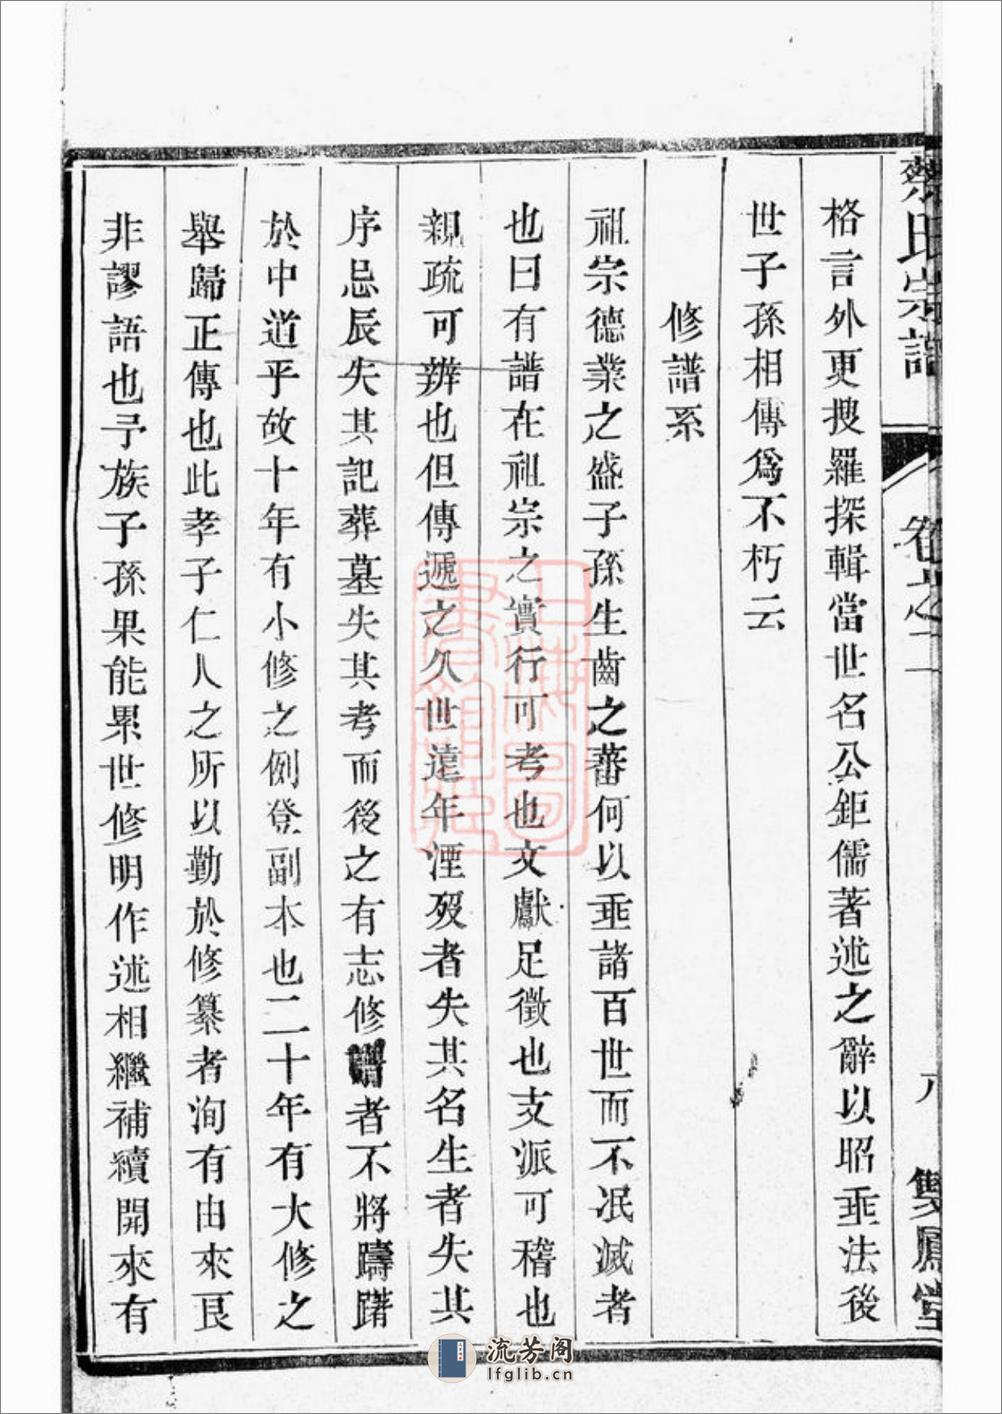 蔡氏宗譜
卷之二
八
雙鳳堂
格言外更搜羅探輯當世名公鉅儒著述之辭以昭垂法後
世子孫相傳爲不朽云
修譜系
祖宗德業之盛子孫生齒之蕃何以垂諸百世而不泯滅者
也曰有譜在祖宗之實行可考也文獻足徵也支派可稽也
親疏可辨也但傳遞之久世遠年湮歿者失其名生者失其
序忌辰失其記葬墓失其考而後之有志修譜者不將躊躇
於中道乎故十年有小修之例登副本也二十年有大修之
舉歸正傳也此孝子仁人之所以勤於修纂者洵有由來良
非謬語也予族子孫果能累世修明作述相繼補續開來有
上海圖書館藏
流芳阁
lfglib.cn